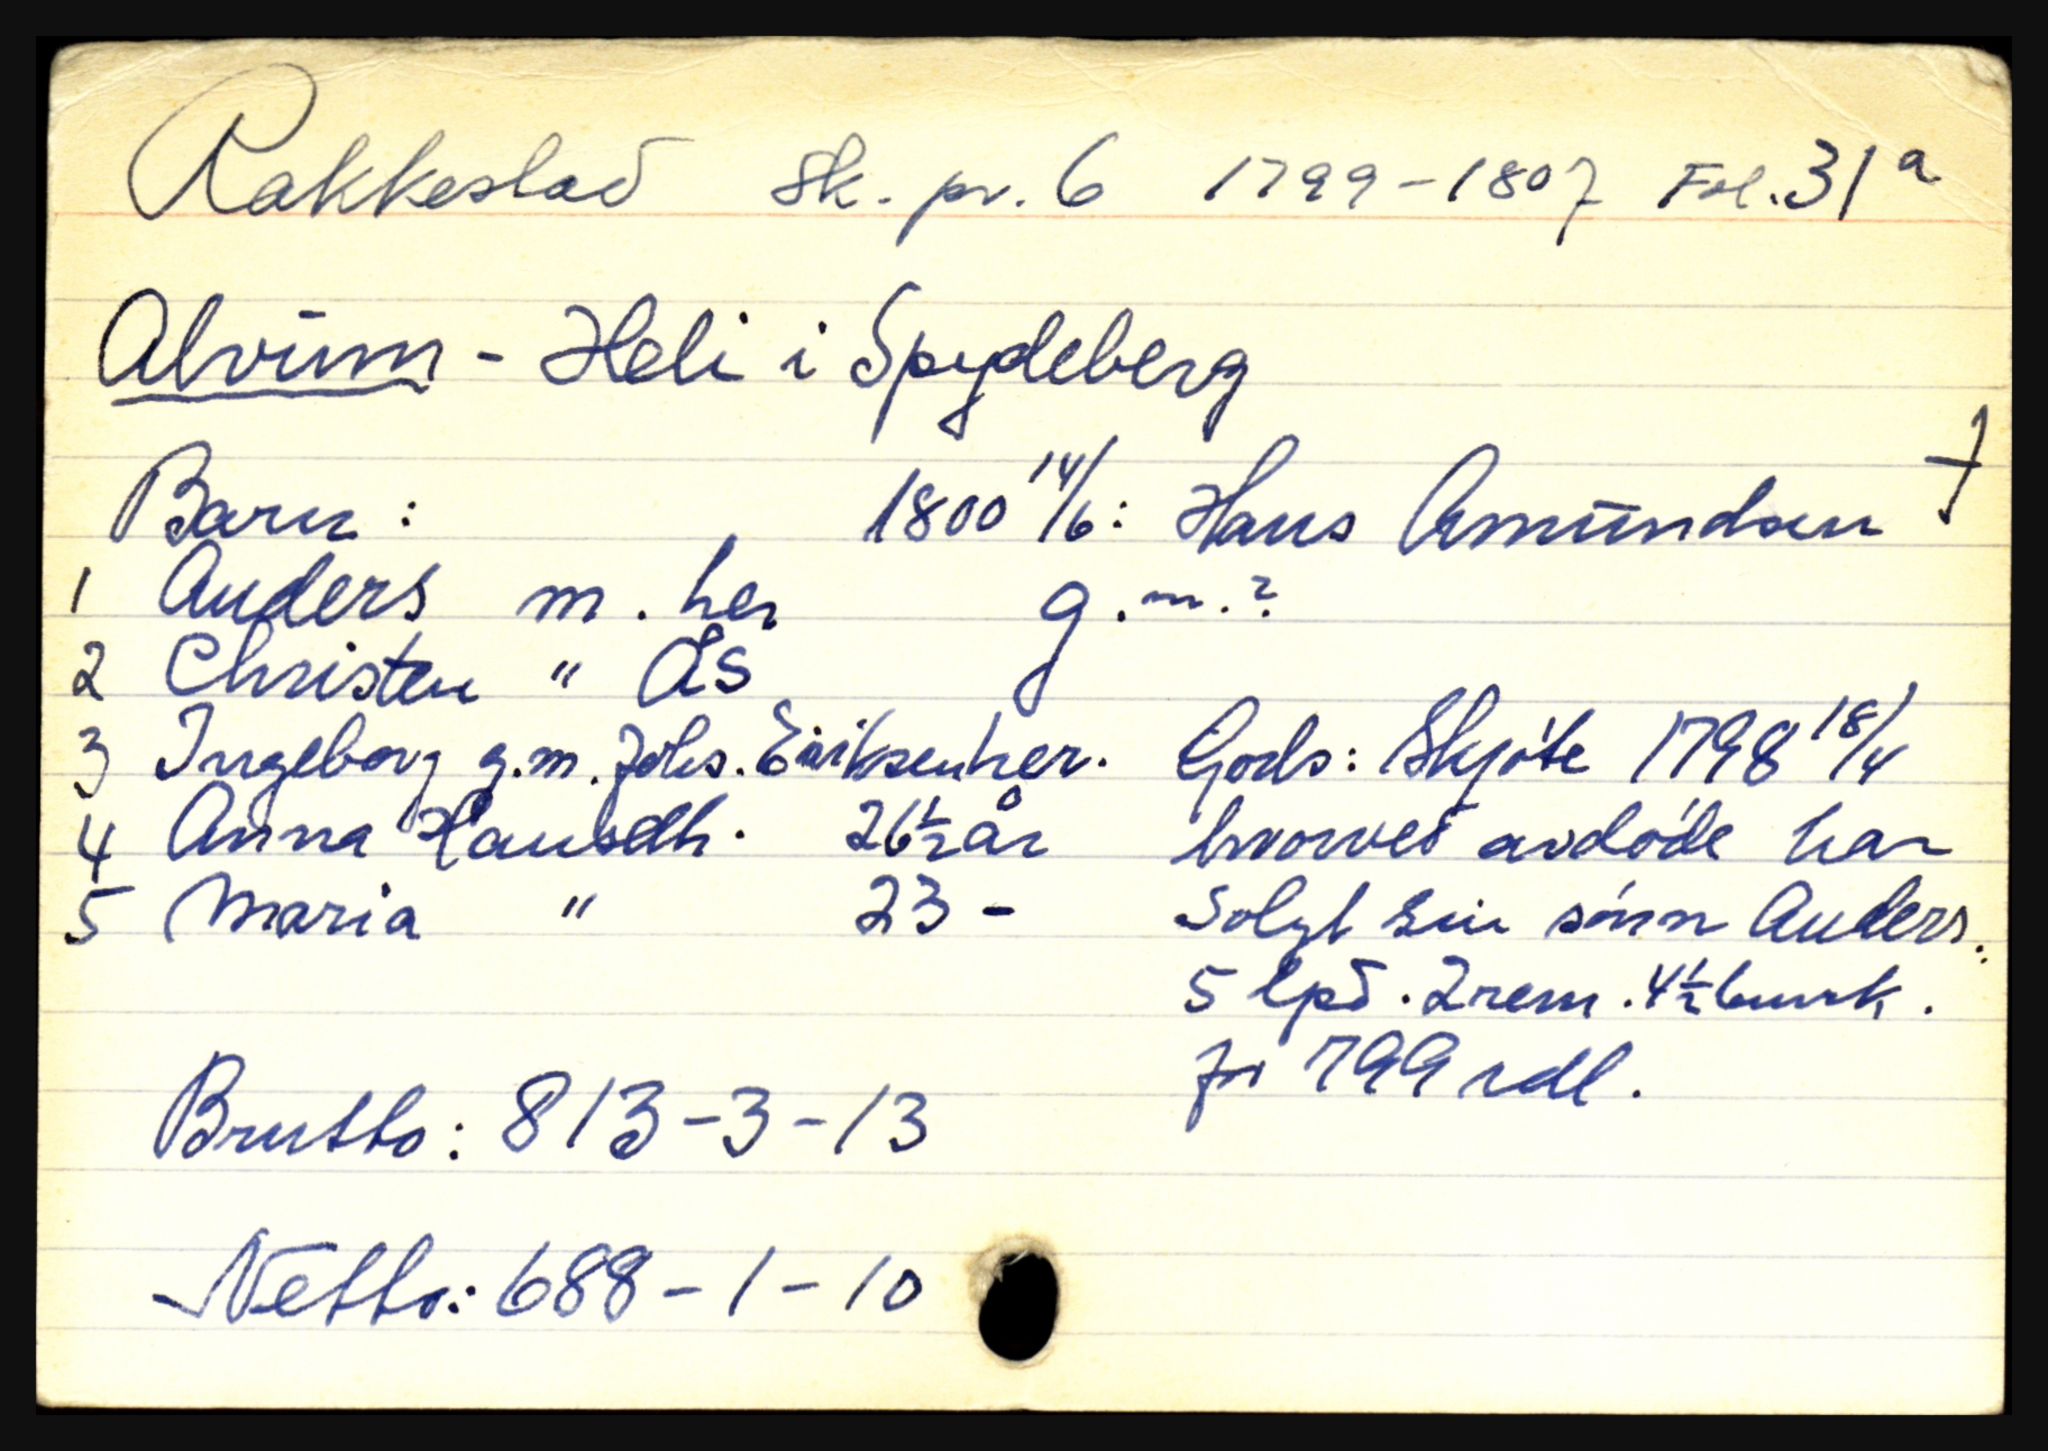 Rakkestad sk. pr. 6 1799-1807 Fol. 31a
Alvum - Heli i Spydeberg
Barn: 1800 14/6: Hans Amundsen †
1 Anders m. her g.m.?
2 Christen " Ås
3 Ingeborg g.m. Johs. Eriksen her.
4 Anna Hansdh. 26½ år
5 Maria " 23 -
Gods: Skjöte 1798 18/4
hvorved avdöde har
solgt sin sönn Anders.:
5 lpd. 2 rem. 4½ bmrk.
for 799 rdl.
Brutto: 813-3-13
Netto: 688-1-10